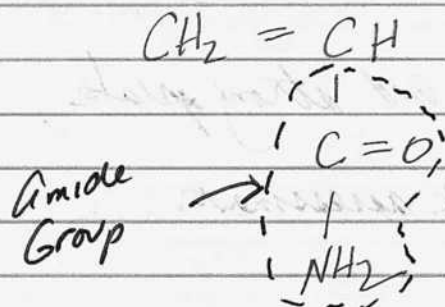 CH2 = CH
C = O
Amide
Group
NH2